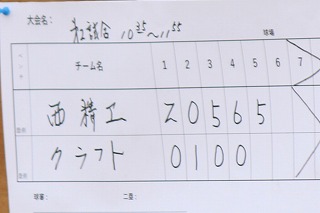 大会名: 第2試合 10 35~11 55 球場
チーム名 1 2 3 4 5 6 7
西精工 2 0 5 6 5
クラフト 0 1 0 0
球審: 二塁: